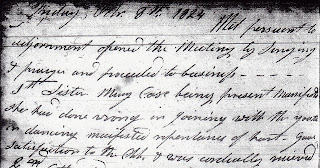 Friday Octr. 9th. 1824
Met persuant to
adjornment opened the Meeting by Singing
& prayer and proceeded to business
1st Sister Mary Case being present manifests
she had done wrong in Joining with the youth
in dancing manifested repentance of heart - Gave
satisfaction to the Chh. & was cordially received